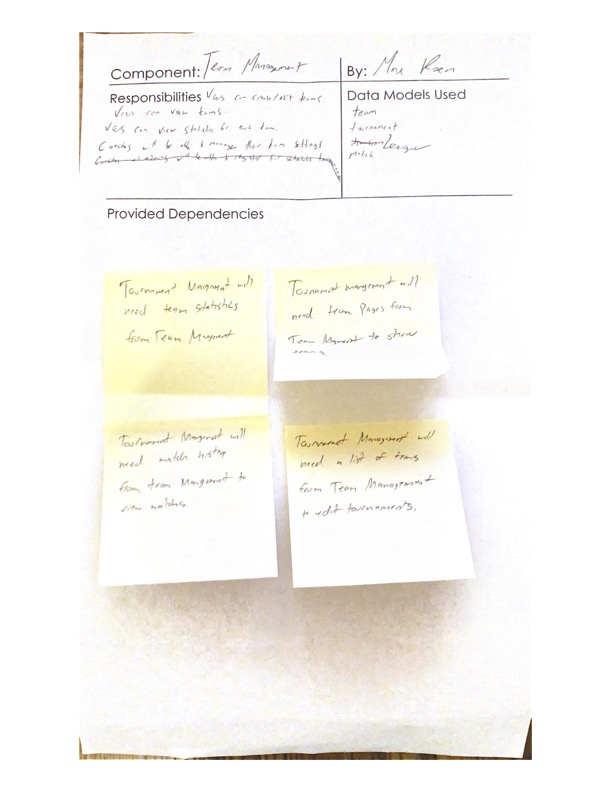 Component: Team Management
By: Max
Responsibilities Users can create/edit teams
Users can view teams.
Users can view statistics for each team.
Coaches will be able to manage their team settings
Data Models Used
team
tournament
League
match
Provided Dependencies
Tournament Mangment will
need team statistics
from Team Mangment
Tournament management will
need team Pages from
Team Mangment to show
Tournament Mangment will
need match history
from team Mangment to
view matches
Tournament Management will
need a list of teams
from Team Management
to edit tournaments.